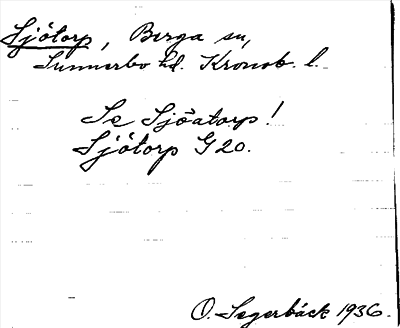 Sjötorp, Berga sn,
Sunnerbo hd. Kronob. l.
Se Sjöatorp!
Sjötorp G 20.
O. Segerbäck 1936.